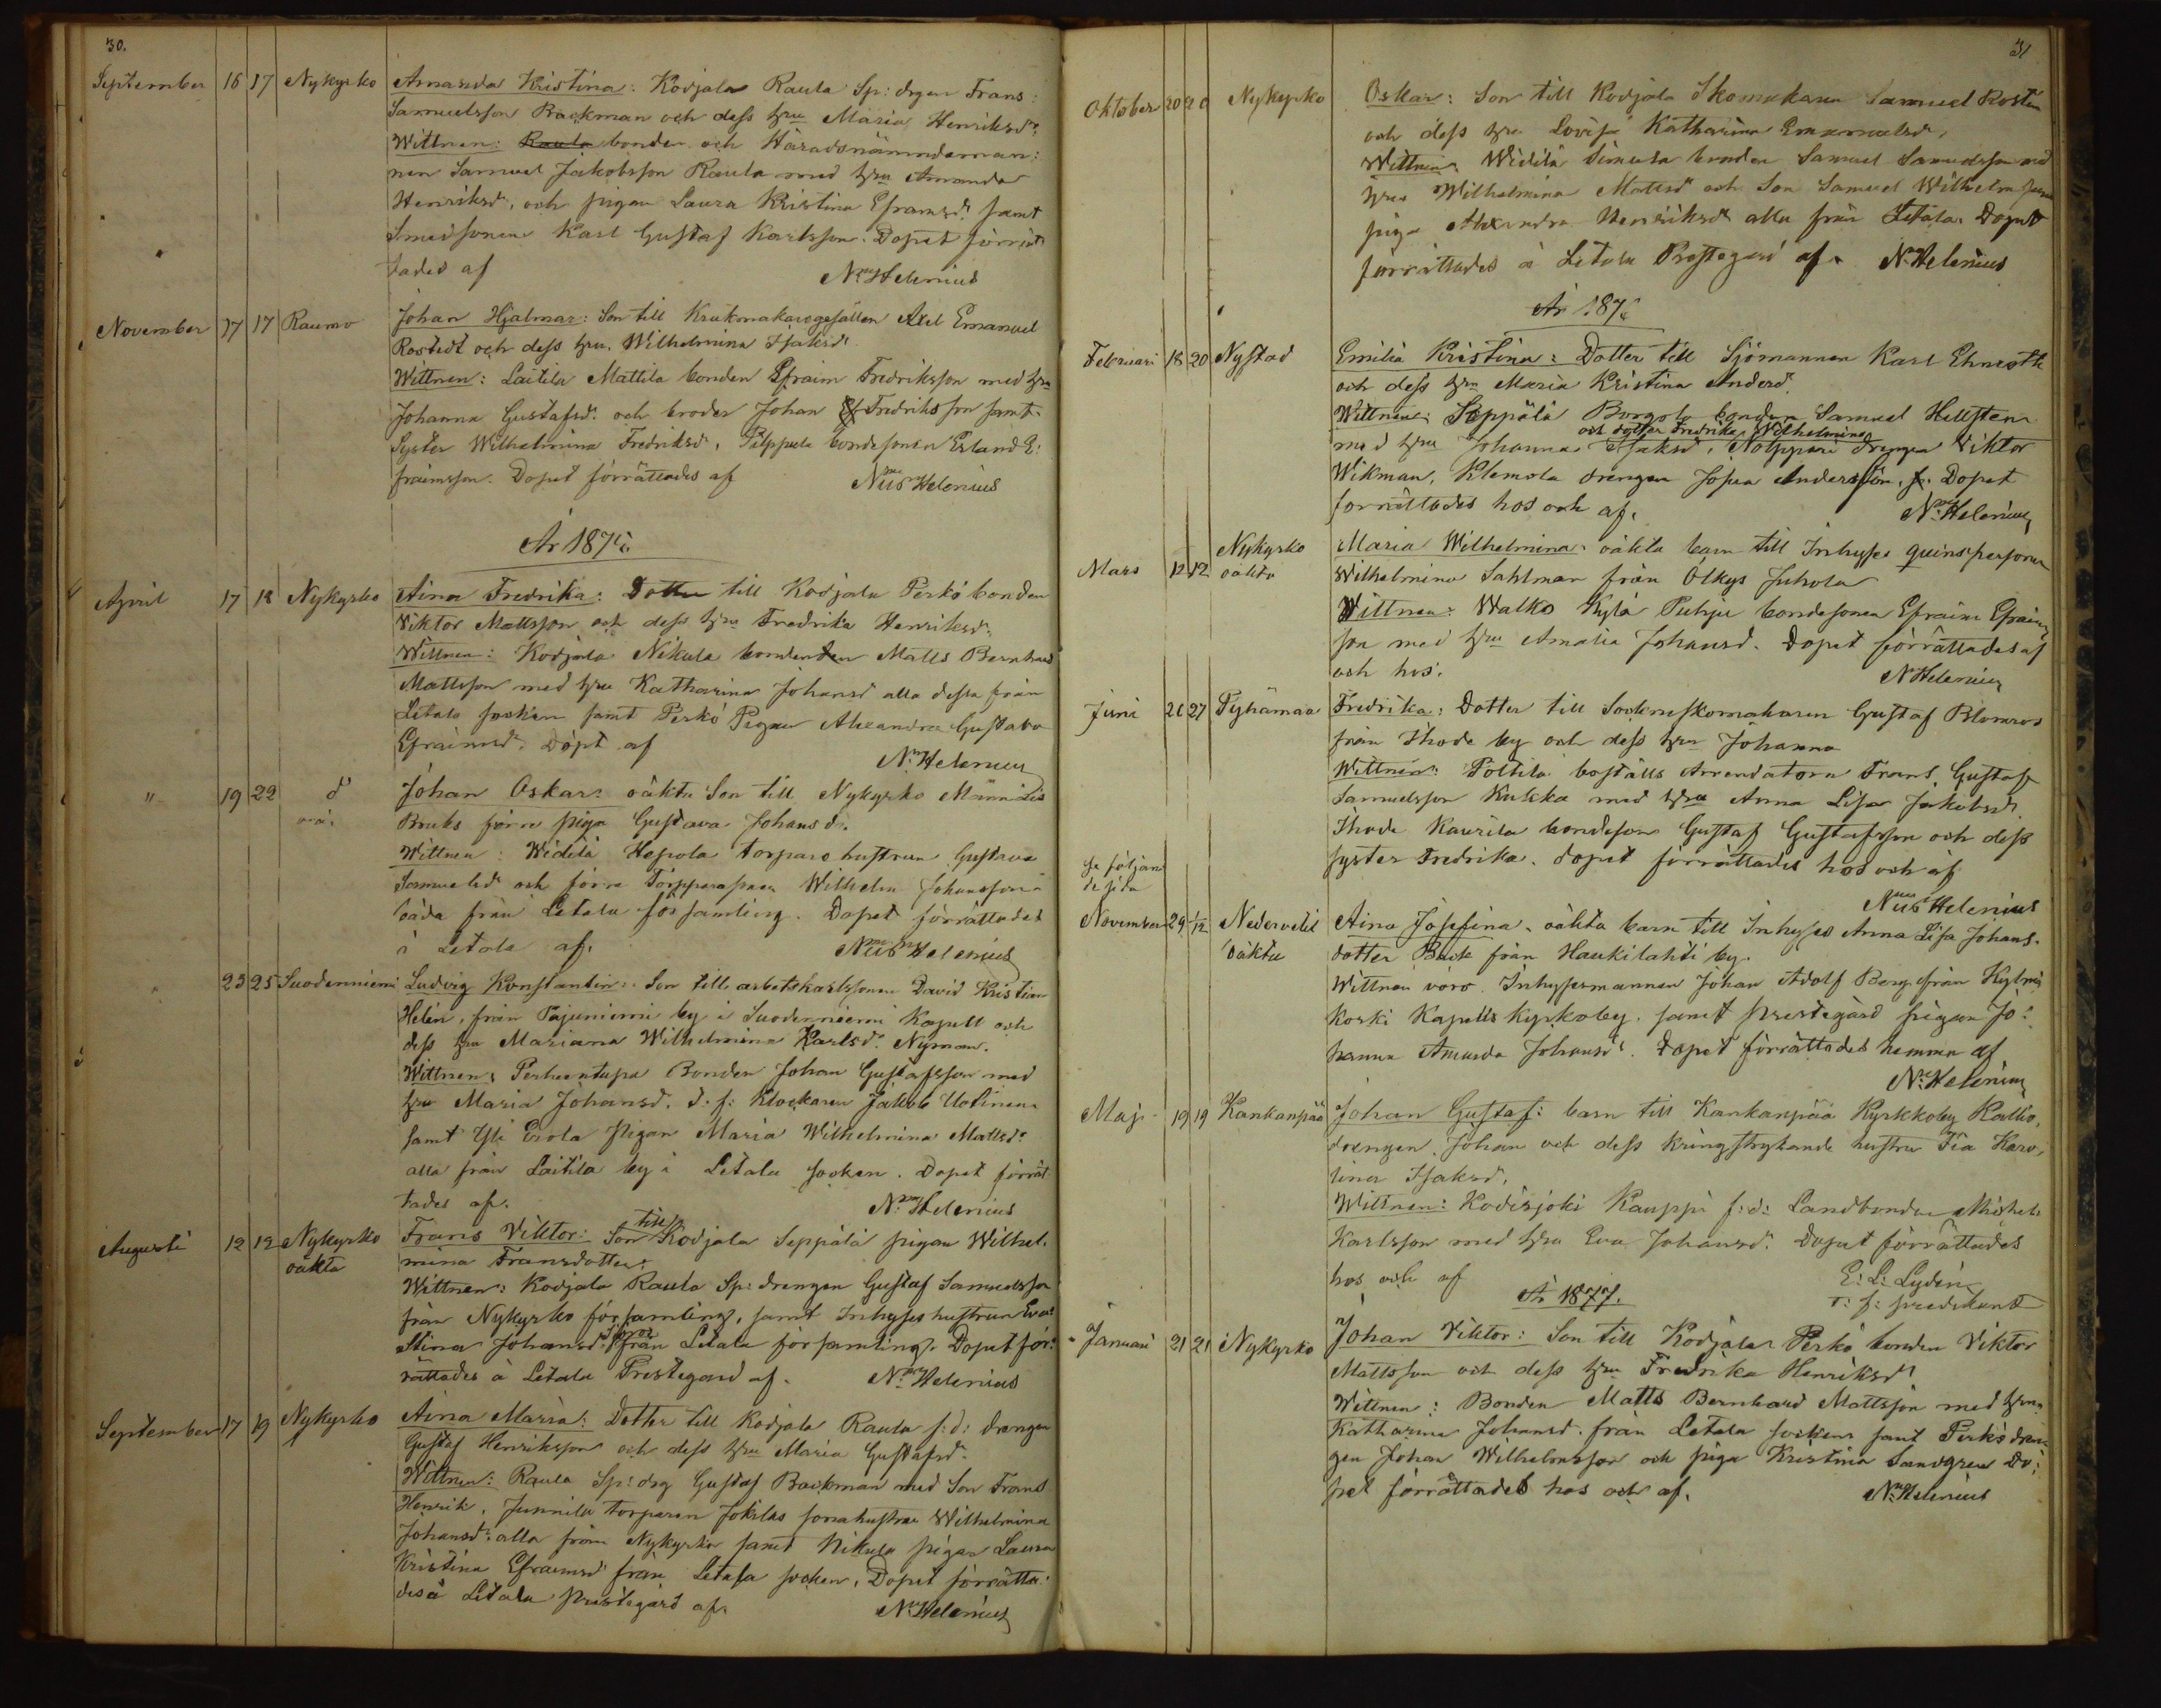 30.
September 16 17 Nykyrko Amanda Kristina: Kodjala Raula Sp: drgen Frans
Samuelsson Backman och dess hru Maria Henriksd:
Wittnen: Raula bonden och Häradsnämndeman:
nen Samuel Jakobsson Raula med hru Amanda
Henriksd, och pigan Laura Kristina Eframsd: samt
Smedsonen Karl Gustaf Karlsson. Dopet förrät
tades af Nus Helenius
November 17 17 Raumo Johan Hjalmar: Son till Krukmakaregesällen Axel Emanuel
Rostedt och dess hru. Wilhelmina Isaksd.
Wittnen: Laitila Mattila bonden Efraim Fredriksson med hru
Johanna Gustafsd. och broder Johan Fredriksson samt
Syster Wilhelmina Fredriksd, Pilppula bondesonen Erland E:
fraimsson. Dopet förrättades af Nus Helenius
År 1875.
April 17 18 Nykyrko Aina Fredrika: Dotter till Kodjala Perkö bonden
Viktor Mattsson och dess hru Fredrika Henriksd.
Wittnen: Kodjala Nikula bonden Matts Bernhard
Mattsson med hru Katharina Johansd alla dessa från
Letala socken samt Perkö Pigan Alexandra Gustava
Efraimsd. Döpt af Ns Helenius
" 19 22 d Johan Oskar: oäkta Son till Nykyrko Männäis
oä. Bruks förre piga Gustava Johansd.
Wittnen: Widilä Hepola torpare hustrun Gustava
Samuelsd och förre Torpparesonen Wilhelm Johansson
båda från Letala församling. Dopet förrättades
i Letala af. Nus Helenius
23 25 Suodenniemi Ludvig Konstantin: Son till arbetskarlssonen David Kristian
Helin, från Pajuniemi by i Suodenniemi Kapell och
dess hru Mariana Wilhelmina Karlsd. Nyman.
Wittnen: Perhontupa Bonden Johan Gustafsson med
hru Maria Johansd. d: f: Klockaren Jakob Uotinen
samt Yli Erola pigan Maria Wilhelmina Mattsd.
alla från Laitila by i Letala socken. Dopet förrät
tades af. Ns Helenius
Augusti 12 12 Nykyrko Frans Viktor: Son till Kodjala Seppälä pigan Wilhel.
oäkta mina Fransdotter.
Wittnen: Kodjala Raula Sp: drengen Gustaf Samuelsson
från Nykyrko församling, samt Inhyses hustrun Eva
Stina Johansd från Letala församling. Dopet för:
rättades å Letala Prestegård af. Ns Helenius
September 17 19 Nykyrko Aina Maria: Dotter till Kodjala Raula f:d: drengen
Gustaf Henriksson och dess hru Maria Gustafsd.
Wittnen: Raula Sp: drg Gustaf Backman med Son Frans
Henrik, Junnila torparen Jokilas sonahustru Wilhelmina
Johansd: alla från Nykyrko samt Nikula pigan Laura
Kristina Efraimsd från Letala socken. Dopet förrätta:
des å Letala prestegård af. Ns Helenius
31
Oktober 20 20 Nykyrko Oskar: Son till Kodjala Skomakaren Samuel Rostén
och dess hru Lovisa Katharina Emanuelsd,
Wittnen: Widilä Simula bonden Samuel Samuelsson med
hru Wilhelmina Mattsd och Son Samuel Wilhelm samt
piga Alexandra Henriksd alla från Letala. Dopet
förrättades å Letala Prestegård af. Ns Helenius
År 1876
Februari 18 20 Nystad Emilia Kristina: Dotter till Sjömannen Karl Ehnroth
och dess hru Maria Kristina Andersd.
Wittnen: Seppälä bonden Samuel Hellsten
och dotter Fredrika Wilhelmina
med hru Johanna Isaksd, drengen Viktor
Wikman, Klemola drengen Josua Andersson. Dopet
förrättades hos och af. Ns Helenius
Mars 12 12 Nykyrko Maria Wilhelmina: oäkta barn till Inhyses quinspersonen
oäkta Wilhelmina Sahlman från Ölkys Juhola
Wittnen: Walko Kylä Puhju bondesonen Efraim Efraims
son med hru Amalia Johansd. Dopet förrättades af
och hos. N Helenius
Juni 26 27 Pyhämaa Fredrika: Dotter till Sockneskomakaren Gustaf Blomros
från Ihode by och dess hru Johanna
Wittnen: Pöltilä boställs Arrendatorn Frans Gustaf
Samuelsson Kukka med hru Anna Lisa Jakobsd.
Ihode Kaurila bondeson Gustaf Gustafsson och dess
syster Fredrika. Dopet förrättades hos och af
Nus Helenius
Se följan
de sida
November 29 1/12 Nedervetil Aina Josefina, oäkta barn till Inhyses Anna Lisa Johans.
oäkta dotter Back från Haukilahti by.
Wittnen voro Inhysesmannen Johan Adolf Berg från Kylmä
koski Kapells Kyrkoby. samt prestegård pigan Jo:
hanna Amanda Johansd. Dopet förrättades hemma af
Ns Helenius
Maj 19 19 Kankanpää Johan Gustaf: barn till Kankanpää Kyrkkoby Kallio,
drengen, Johan och dess kringstrykande hustru Fia Karo,
lina Isaksd.
Wittnen: Kodisjoki Kauppi f:d: Landbonden Michel
Karlsson med hru Eva Johansd. Dopet förrättades
hos och af E: L: Lydén
År 1877. t: f: predikant
Januari 21 21 Nykyrko Johan Viktor: Son till Kodjala Perkö bonden Viktor
Mattsson och dess hru Fredrika Henriksd
Wittnen: Bonden Matts Bernhard Mattsson med hrun
Katharina Johansd. från Letala socken samt Perkö dren
gen Johan Wilhelmsson och piga Kristina Sandgren Do:
pet förrättades hos och af. Ns Helenius